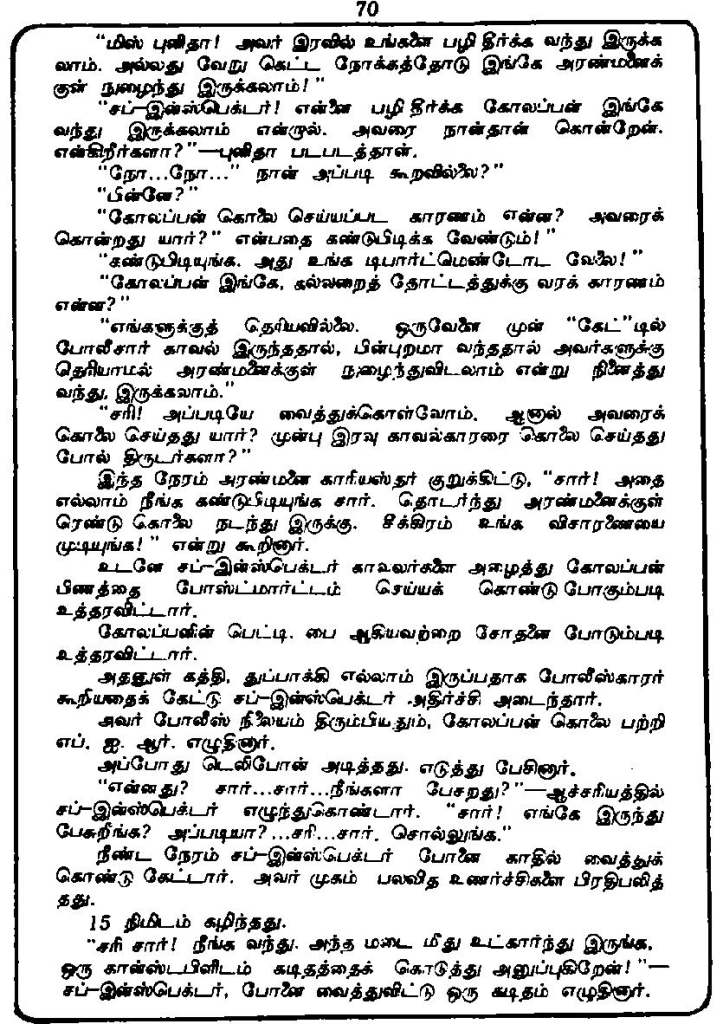 70
“மிஸ் புனிதா! அவர் இரவில் உங்களை பழி தீர்க்க வந்து இருக்க
லாம். அல்லது வேறு கெட்ட நோக்கத்தோடு இங்கே அரண்மனைக்
குள் நுழைந்து இருக்கலாம்!”
“சப்-இன்ஸ்பெக்டர்! என்னை பழி தீர்க்க கோலப்பன் இங்கே
வந்து இருக்கலாம் என்றால். அவரை நான்தான் கொன்றேன்.
என்கிறீர்களா?”—புனிதா படபடத்தான்.
“நோ...நோ...” நான் அப்படி கூறவில்லை?”
“பின்னே?”
“கோலப்பன் கொலை செய்யப்பட காரணம் என்ன? அவரைக்
கொன்றது யார்?” என்பதை கண்டுபிடிக்க வேண்டும்!”
“கண்டுபிடியுங்க. அது உங்க டிபார்ட்மெண்டோட வேலை!”
“கோலப்பன் இங்கே, கல்லறைத் தோட்டத்துக்கு வரக் காரணம்
என்ன?”
“எங்களுக்குத் தெரியவில்லை. ஒருவேளை முன் “கேட்”டில்
போலீசார் காவல் இருந்ததால், பின்புறமா வந்ததால் அவர்களுக்கு
தெரியாமல் அரண்மனைக்குள் நுழைந்துவிடலாம் என்று நினைத்து
வந்து, இருக்கலாம்.”
“சரி! அப்படியே வைத்துக்கொள்வோம். ஆனால் அவரைக்
கொலை செய்தது யார்? முன்பு இரவு காவல்காரரை கொலை செய்தது
போல் திருடர்களா?”
இந்த நேரம் அரண்மனை காரியஸ்தர் குறுக்கிட்டு, “சார்! அதை
எல்லாம் நீங்க கண்டுபிடியுங்க சார். தொடர்ந்து அரண்மனைக்குள்
ரெண்டு கொலை நடந்து இருக்கு. சீக்கிரம் உங்க விசாரணையை
முடியுங்க!” என்று கூறினார்.
உடனே சப்-இன்ஸ்பெக்டர் காவலர்களை அழைத்து கோலப்பன்
பிணத்தை போஸ்ட்மார்ட்டம் செய்யக் கொண்டு போகும்படி
உத்தரவிட்டார்.
கோலப்பனின் பெட்டி. பை ஆகியவற்றை சோதனை போடும்படி
உத்தரவிட்டார்.
அதனுள் கத்தி, துப்பாக்கி எல்லாம் இருப்பதாக போலீஸ்காரர்
கூறியதைக் கேட்டு சப்-இன்ஸ்பெக்டர் அதிர்ச்சி அடைந்தார்.
அவர் போலீஸ் நிலையம் திரும்பியதும், கோலப்பன் கொலை பற்றி
எப். ஐ. ஆர். எழுதினார்.
அப்போது டெலிபோன் அடித்தது. எடுத்து பேசினார்.
“என்னது? சார்...சார்...நீங்களா பேசறது?”—ஆச்சரியத்தில்
சப்-இன்ஸ்பெக்டர் எழுந்துகொண்டார். “சார்! எங்கே இருந்து
பேசுறீங்க? அப்படியா?...சரி...சார். சொல்லுங்க.”
நீண்ட நேரம் சப்-இன்ஸ்பெக்டர் போனை காதில் வைத்துக்
கொண்டு கேட்டார். அவர் முகம் பலவித உணர்ச்சிகளை பிரதிபலித்
தது.
15 நிமிடம் கழிந்தது.
“சரி சார்! நீங்க வந்து. அந்த மடை மீது உட்கார்ந்து இருங்க.
ஒரு கான்ஸ்டபிளிடம் கடிதத்தைக் கொடுத்து அனுப்புகிறேன்!”—
சப்-இன்ஸ்பெக்டர், போனை வைத்துவிட்டு ஒரு கடிதம் எழுதினார்.